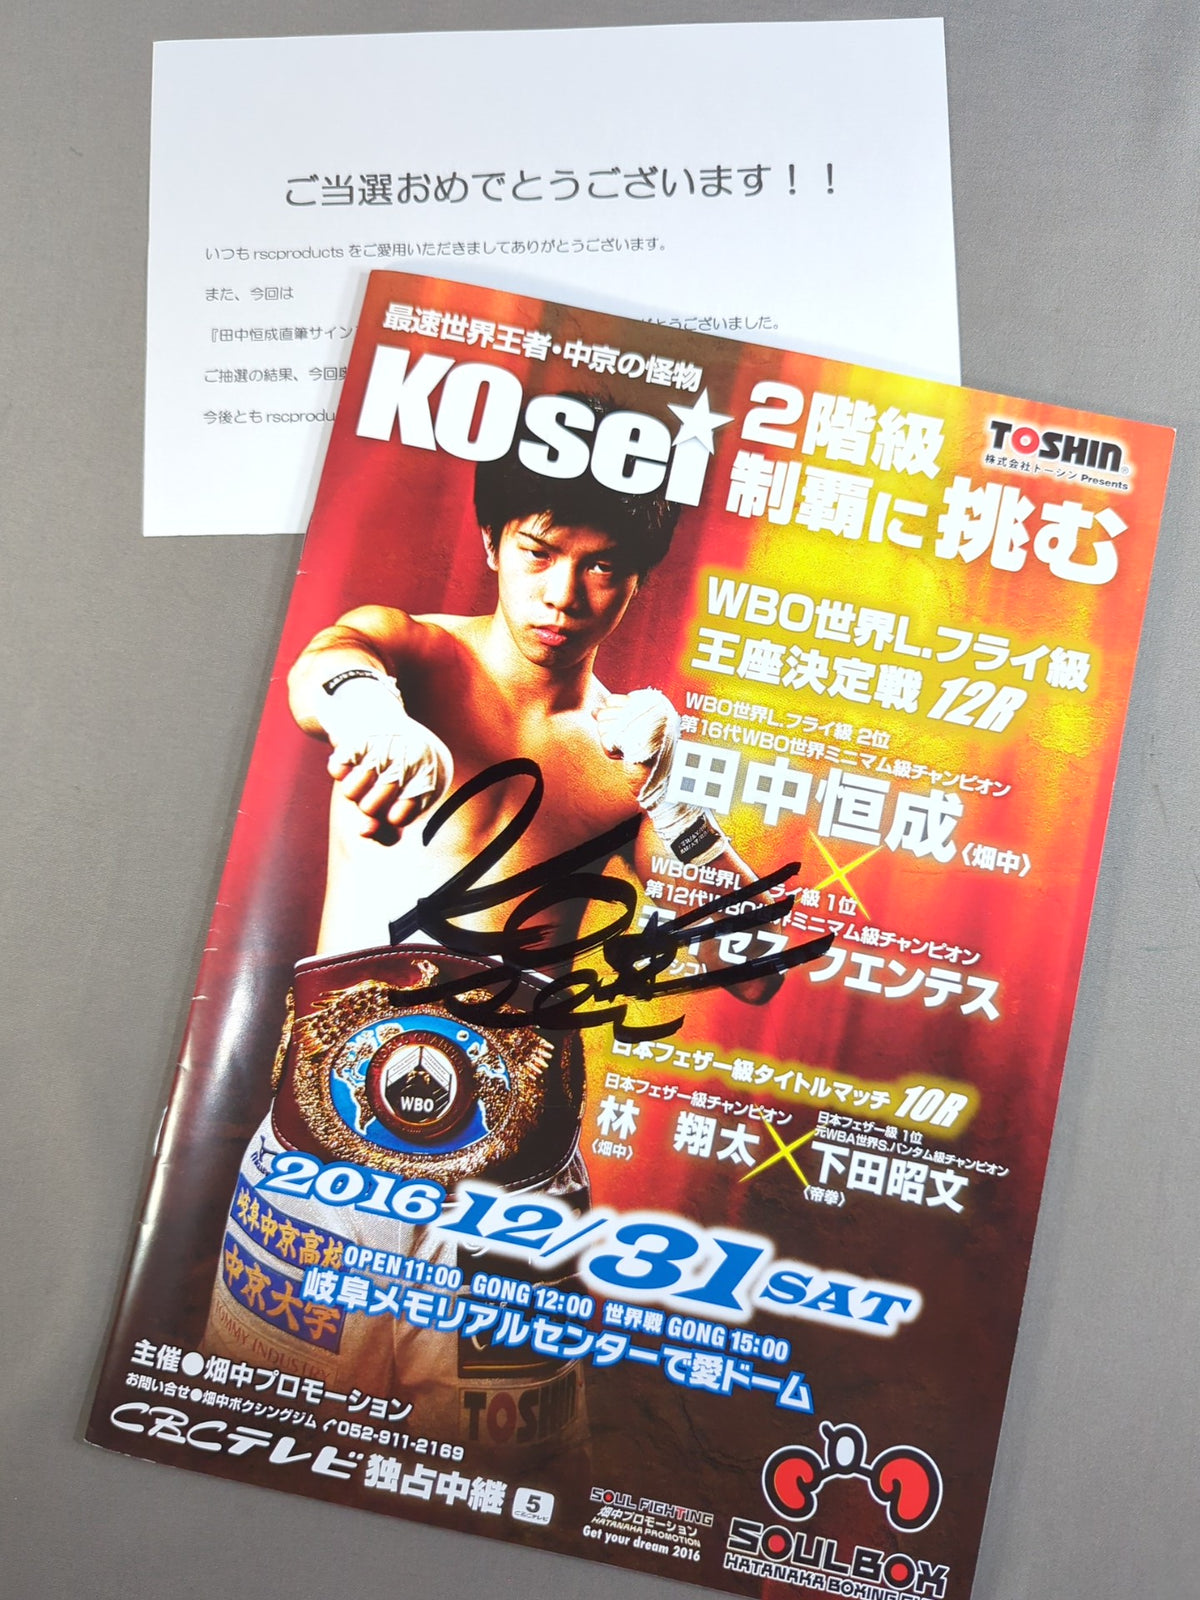 ご当選おめでとうございます！！
いつも rscproducts をご愛用いただきましてありがとうございます。
また、今回は
『田中恒成直筆サイン
とうございました。
ご抽選の結果、今回
今後とも rscprodu
最速世界王者・中京の怪物
KOsei
2階級
制覇に挑む
TOSHIN
株式会社トーシン Presents
WBO世界L.フライ級
王座決定戦 12R
WBO世界L.フライ級 2位
第16代WBO世界ミニマム級チャンピオン
田中恒成〈畑中〉
×
WBO世界L.フライ級 1位
第12代WBO世界ミニマム級チャンピオン
セス・フエンテス
日本フェザー級タイトルマッチ 10R
日本フェザー級チャンピオン
林 翔太
〈畑中〉
×
日本フェザー級 1位
元WBA世界S.バンタム級チャンピオン
下田昭文
〈帝拳〉
WBO
2016 12/31 SAT
岐阜中京高校
中京大学
OPEN 11:00 GONG 12:00 世界戦 GONG 15:00
岐阜メモリアルセンターで愛ドーム
TOMMY INDUSTRY
TOSHIN
主催●畑中プロモーション
お問い合せ●畑中ボクシングジム 052-911-2169
CBCテレビ 独占中継 5
CBCテレビ
SOUL FIGHTING
畑中プロモーション
HATANAKA PROMOTION
Get your dream 2016
SOUL BOX
HATANAKA BOXING